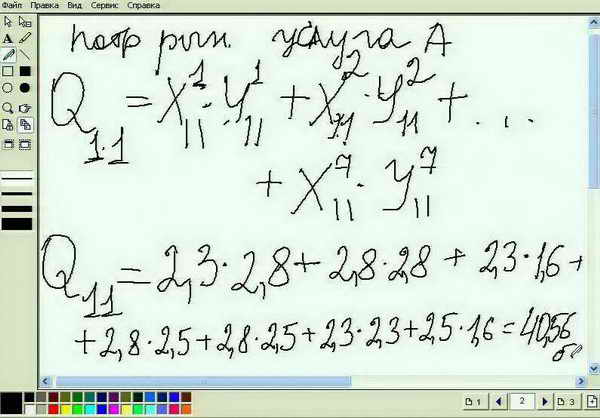 Файл Правка Вид Сервис Справка
потр рын. услуга А
Q₁.₁ = X¹₁₁ · Y¹₁₁ + X²₁₁ · Y²₁₁ + . . .
+ X⁷₁₁ · Y⁷₁₁
Q₁₁ = 2,3 · 2,8 + 2,8 · 2,8 + 2,3 · 1,6 +
+ 2,8 · 2,5 + 2,8 · 2,5 + 2,3 · 2,3 + 2,5 · 1,6 = 40,56
1 2 3